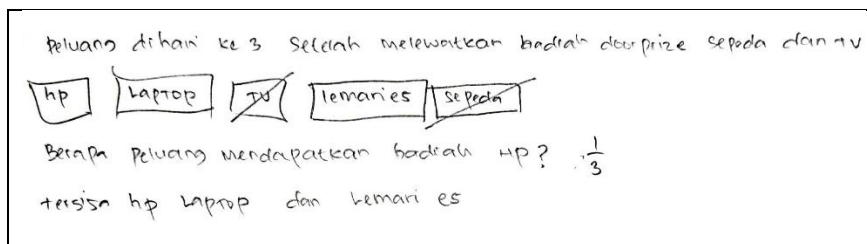 Peluang dihari ke 3 Setelah melewatkan hadiah doorprize sepeda dan TV
hp Laptop TV lemari es sepeda
Berapa Peluang mendapatkan hadiah HP? 1/3
tersisa hp Laptop dan Lemari es